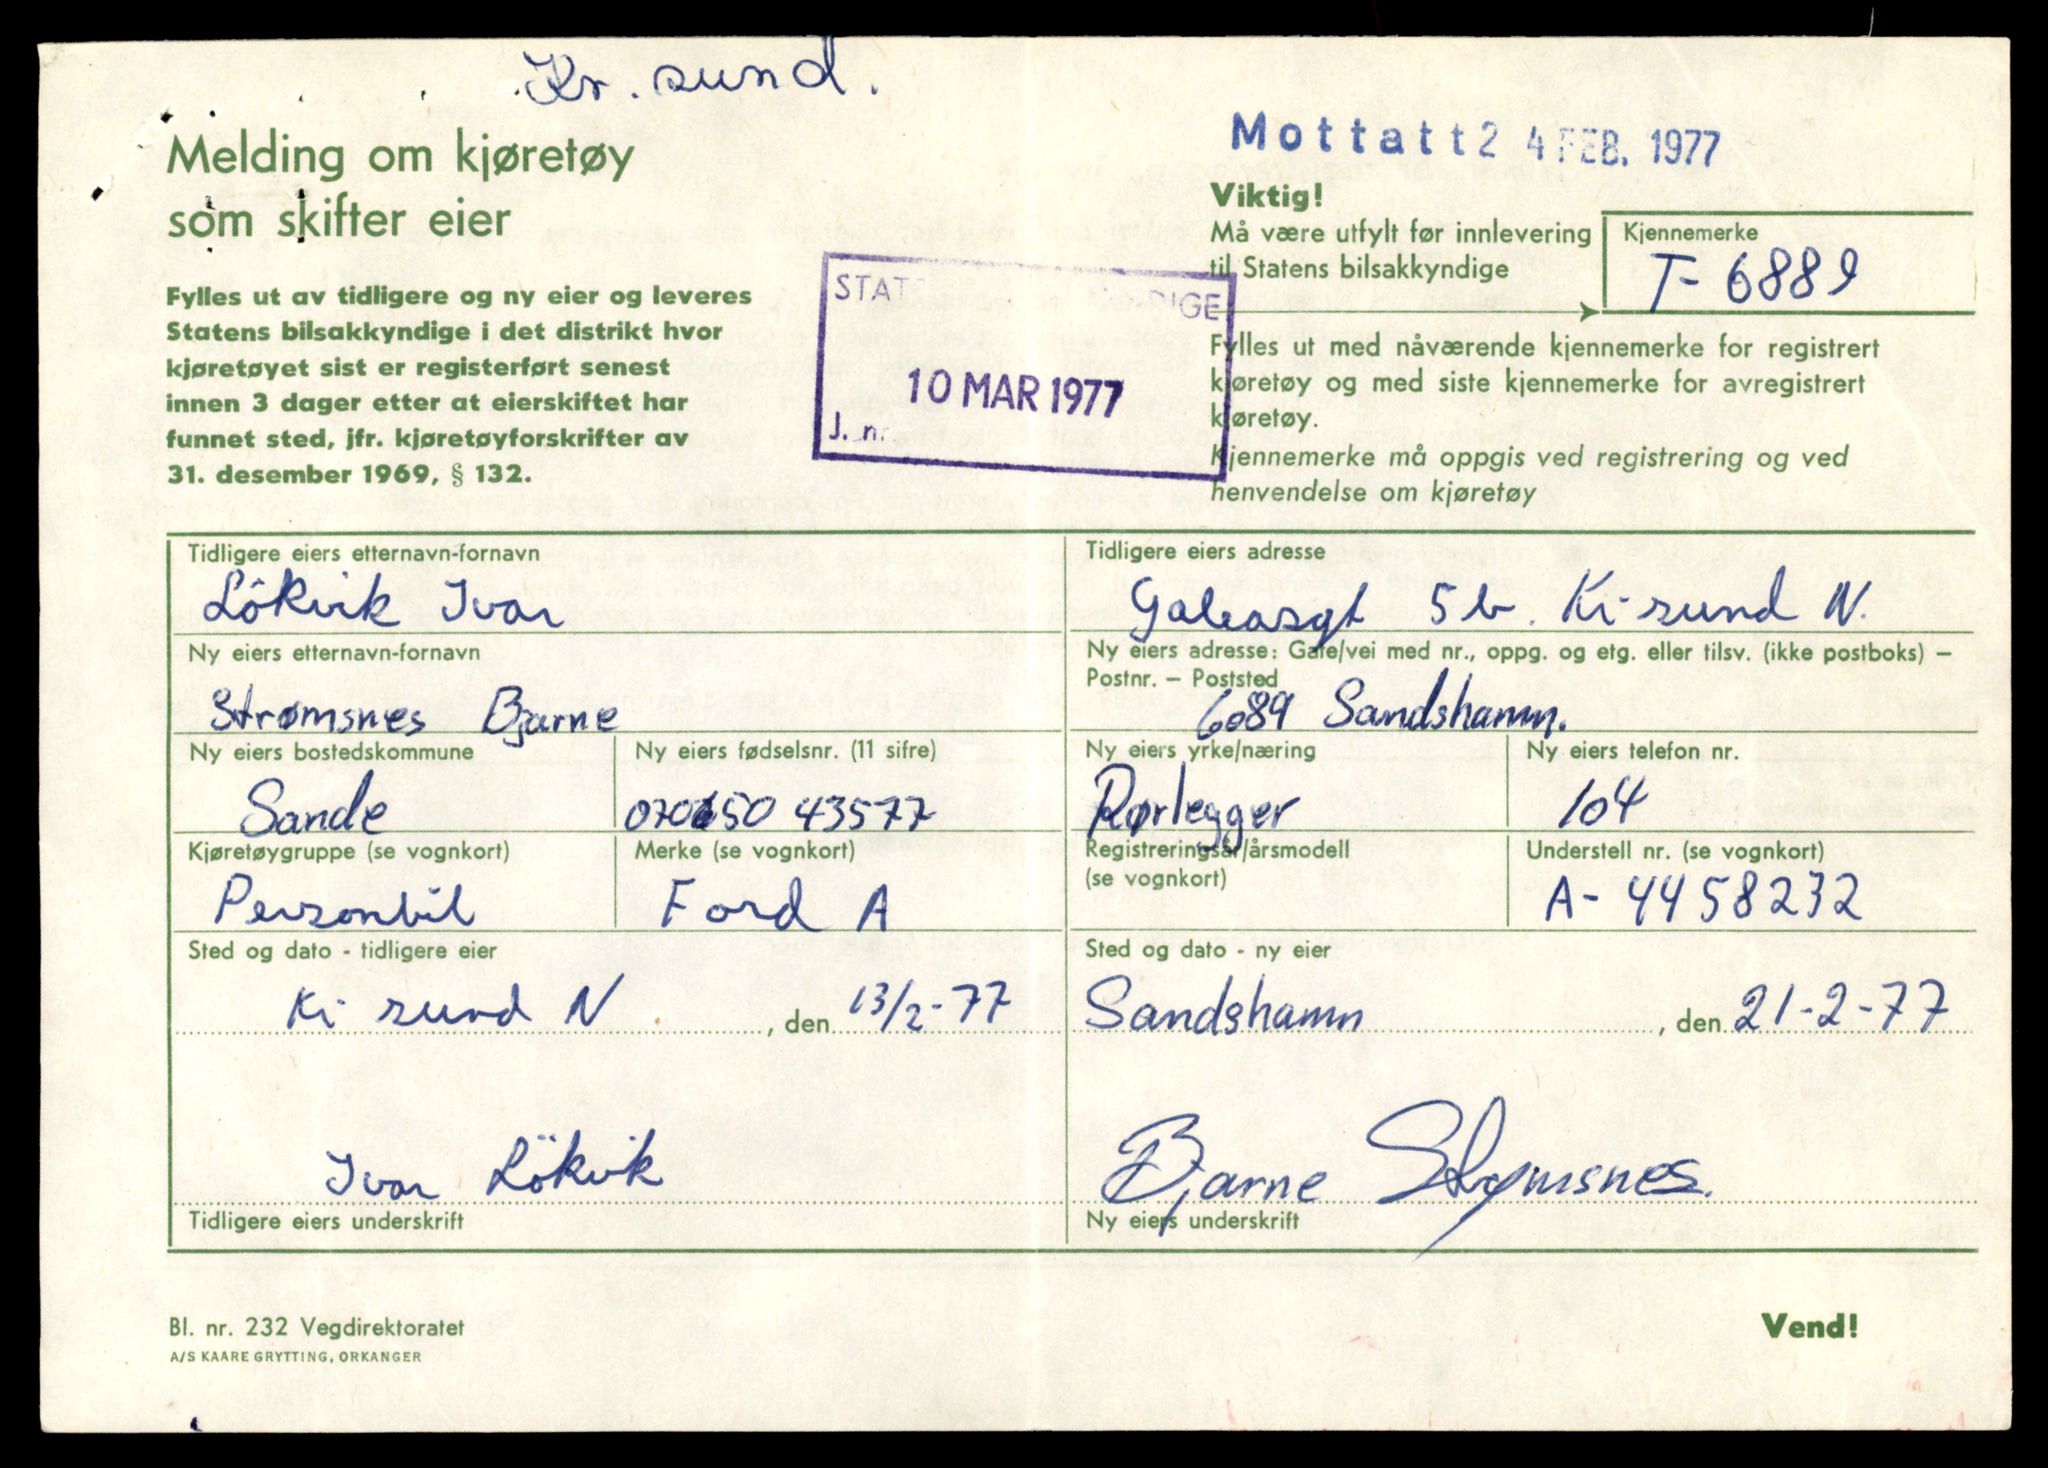 Kr. sund.
Melding om kjøretøy
som skifter eier
Fylles ut av tidligere og ny eier og leveres
Statens bilsakkyndige i det distrikt hvor
kjøretøyet sist er registerført senest
innen 3 dager etter at eierskiftet har
funnet sted, jfr. kjøretøyforskrifter av
31. desember 1969, § 132.
10 MAR 1977
J. nr.
Mottatt 24 FEB. 1977
Viktig!
Må være utfylt før innlevering
til Statens bilsakkyndige
Kjennemerke
T- 6889
Fylles ut med nåværende kjennemerke for registrert
kjøretøy og med siste kjennemerke for avregistrert
kjøretøy.
Kjennemerke må oppgis ved registrering og ved
henvendelse om kjøretøy
Tidligere eiers etternavn-fornavn
Lökvik Ivar
Tidligere eiers adresse
Galeasgt 5 b. Kr sund N.
Ny eiers etternavn-fornavn
Strømsnes Bjarne
Ny eiers adresse: Gate/vei med nr., oppg. og etg. eller tilsv. (ikke postboks) –
Postnr. – Poststed
6089 Sandshamn.
Ny eiers bostedskommune
Sande
Ny eiers fødselsnr. (11 sifre)
43577
Ny eiers yrke/næring
Rørlegger
Ny eiers telefon nr.
104
Kjøretøygruppe (se vognkort)
Personbil
Merke (se vognkort)
Ford A
Registreringsår/årsmodell
(se vognkort)
Understell nr. (se vognkort)
A- 4458232
Sted og dato - tidligere eier
Kr sund N , den 13/2-77
Sted og dato - ny eier
Sandshamn , den 21-2-77
Ivar Lökvik
Tidligere eiers underskrift
Bjarne Strømsnes.
Ny eiers underskrift
Bl. nr. 232 Vegdirektoratet
A/S KAARE GRYTTING, ORKANGER
Vend!